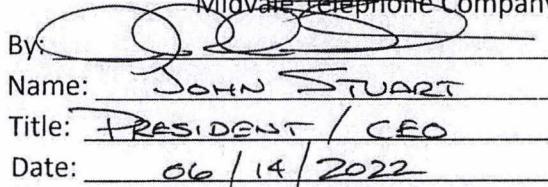 Midvale Telephone Company
By:
Name: JOHN STUART
Title: PRESIDENT / CEO
Date: 06/14/2022